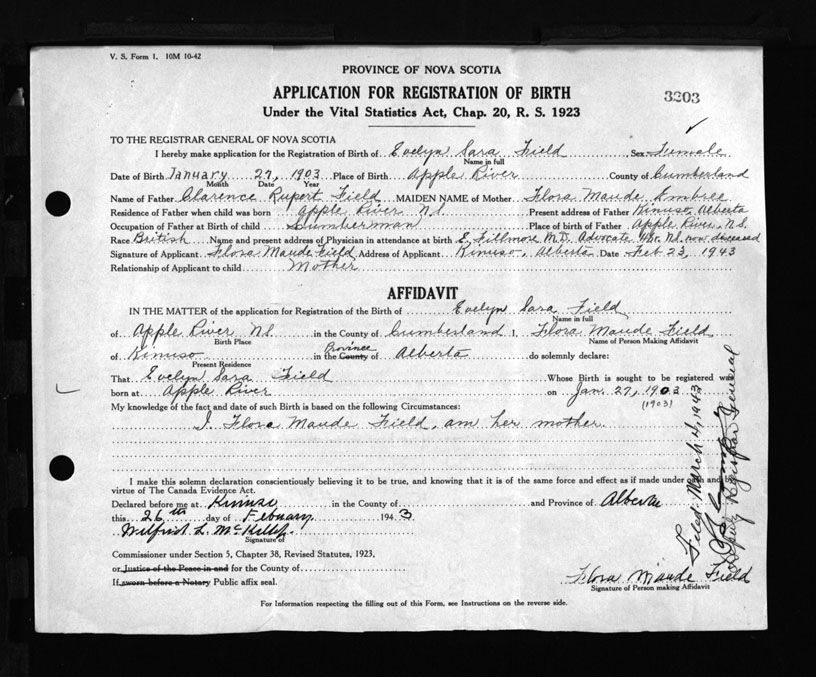 V. S. Form 1. 10M 10-42
PROVINCE OF NOVA SCOTIA
APPLICATION FOR REGISTRATION OF BIRTH
3203
Under the Vital Statistics Act, Chap. 20, R. S. 1923
TO THE REGISTRAR GENERAL OF NOVA SCOTIA
I hereby make application for the Registration of Birth of Evelyn Sara Field, Sex Female
Name in full
Date of Birth January 27, 1903 Place of Birth Apple River County of Cumberland
Month Date Year
Name of Father Clarence Rupert Field MAIDEN NAME of Mother Flora Maude Embree
Residence of Father when child was born Apple River N.S. Present address of Father Kinuso, Alberta
Occupation of Father at Birth of child Lumberman Place of birth of Father Apple River, N.S.
Race British Name and present address of Physician in attendance at birth E. Fillmore M.D. Advocate Hbr. N.S. now deceased
Signature of Applicant Flora Maude Field Address of Applicant Kinuso, Alberta Date Feb 23, 1943
Relationship of Applicant to child Mother
AFFIDAVIT
IN THE MATTER of the application for Registration of the Birth of Evelyn Sara Field
Name in full
of Apple River N.S. in the County of Cumberland I, Flora Maude Field
Birth Place Name of Person Making Affidavit
of Kinuso in the County Province of Alberta do solemnly declare:
Present Residence
That Evelyn Sara Field Whose Birth is sought to be registered was
born at Apple River on Jan. 27, 1903
(1903)
My knowledge of the fact and date of such Birth is based on the following Circumstances:
I, Flora Maude Field, am her mother.
I make this solemn declaration conscientiously believing it to be true, and knowing that it is of the same force and effect as if made under oath and by
virtue of The Canada Evidence Act.
Declared before me at Kinuso in the County of and Province of Alberta
this 26th day of Febuary 1943
Wilfrid L. McKillop
Signature of
Commissioner under Section 5, Chapter 38, Revised Statutes, 1923,
or Justice of the Peace in and for the County of
If sworn before a Notary Public affix seal.
Flora Maude Field
Signature of Person making Affidavit
For Information respecting the filling out of this Form, see Instructions on the reverse side.
Filed March 4, 1943
Deputy Registrar General